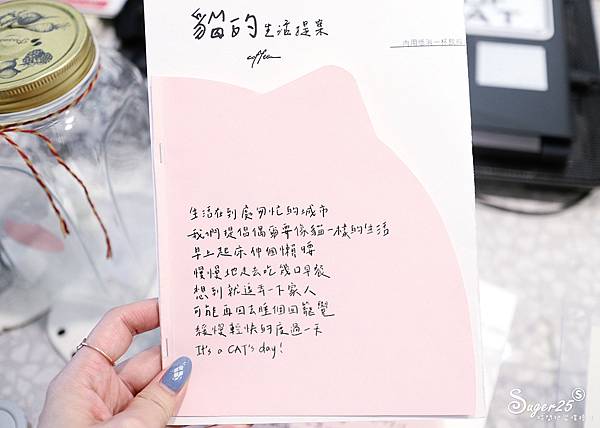 貓的生活提案
coffee
內用低消一杯飲料
生活在到處匆忙的城市
我們提倡偶爾要像貓一樣的生活
早上起床伸個懶腰
慢慢地走去吃幾口早餐
想到就逗弄一下家人
可能再回去睡個回籠覺
緩慢輕快的度過一天
It's a CAT's day!
CAT
Suger25